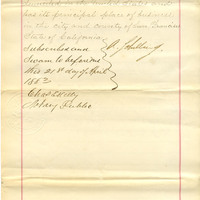 has its principal place of business
in the city and county of San Francisco
State of California.
Subscribed and
Sworn to before me
this 21st day of April
1883
Notary Public